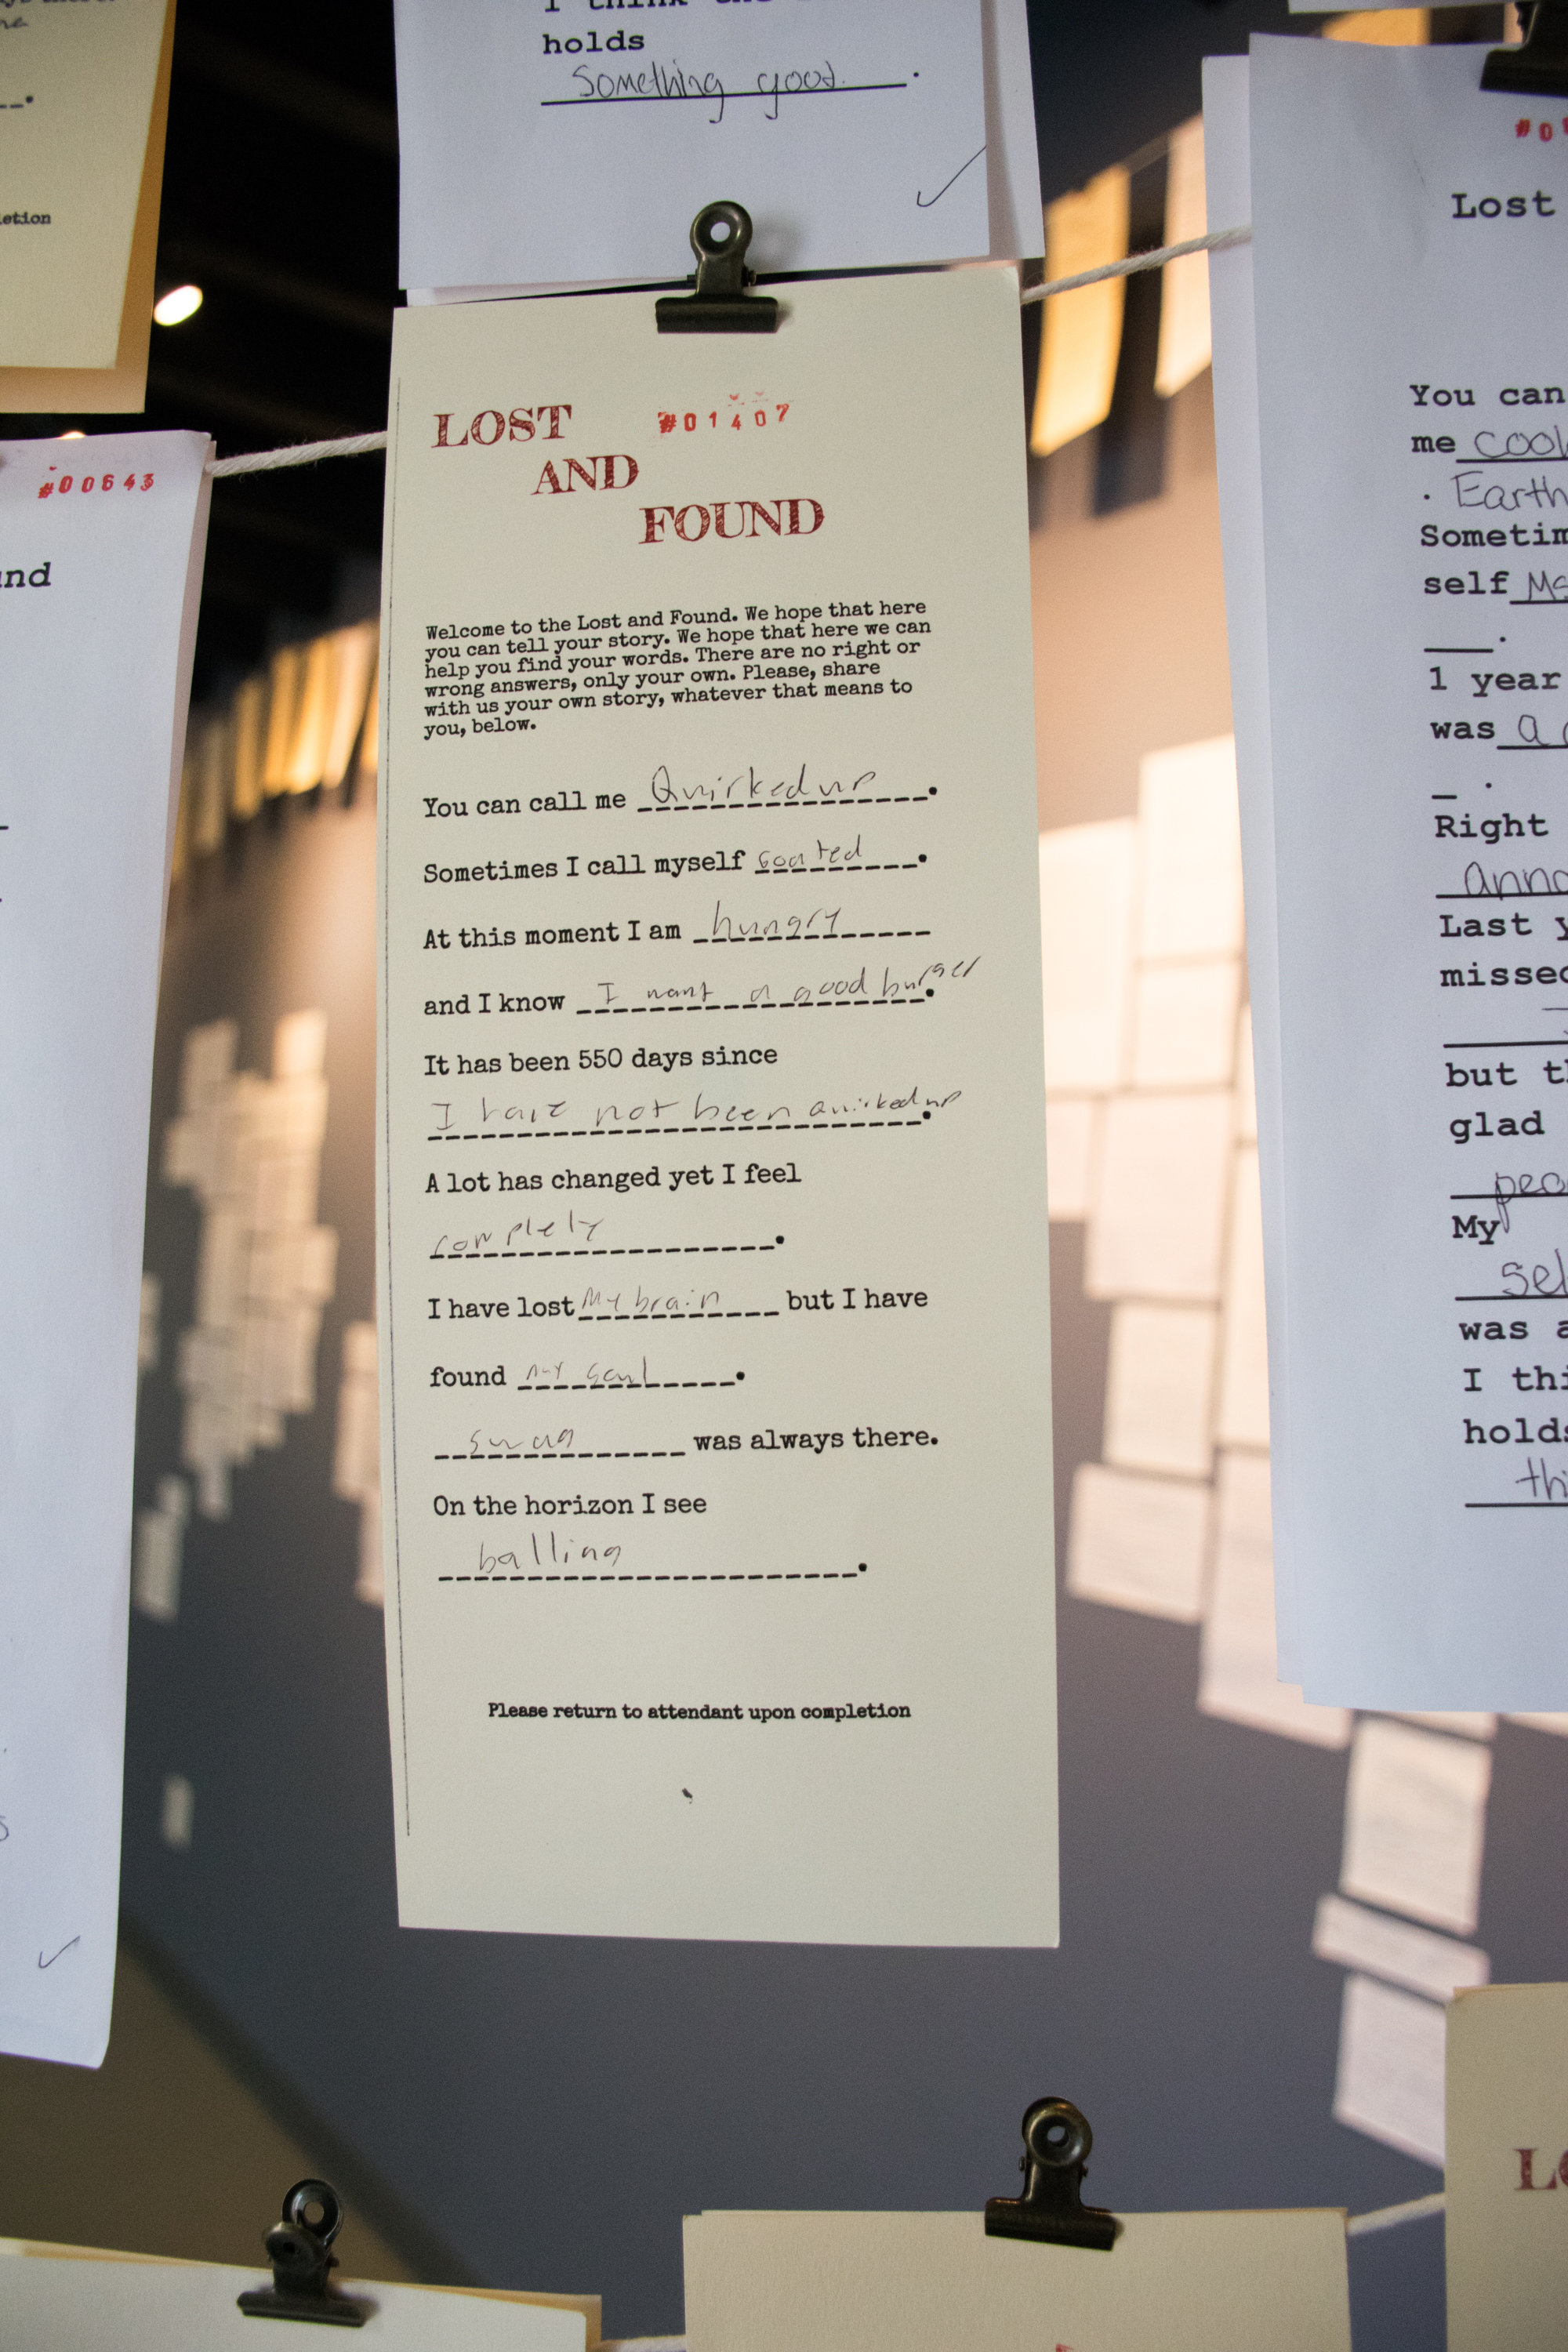 holds
Something good.
etion
#00643
nd
LOST #01407
AND
FOUND
Welcome to the Lost and Found. We hope that here
you can tell your story. We hope that here we can
help you find your words. There are no right or
wrong answers, only your own. Please, share
with us your own story, whatever that means to
you, below.
You can call me Quirked up.
Sometimes I call myself Goated.
At this moment I am hungry
and I know I want a good burger.
It has been 550 days since
I have not been quirked up.
A lot has changed yet I feel
complely.
I have lost my brain but I have
found my soul.
swag was always there.
On the horizon I see
balling.
Please return to attendant upon completion
Lost
You can
me cool
. Earth
Sometim
self
1 year
was a
Right
anno
Last y
missed
but th
glad
peo
My
sel
was a
I thi
holds
thi
LO